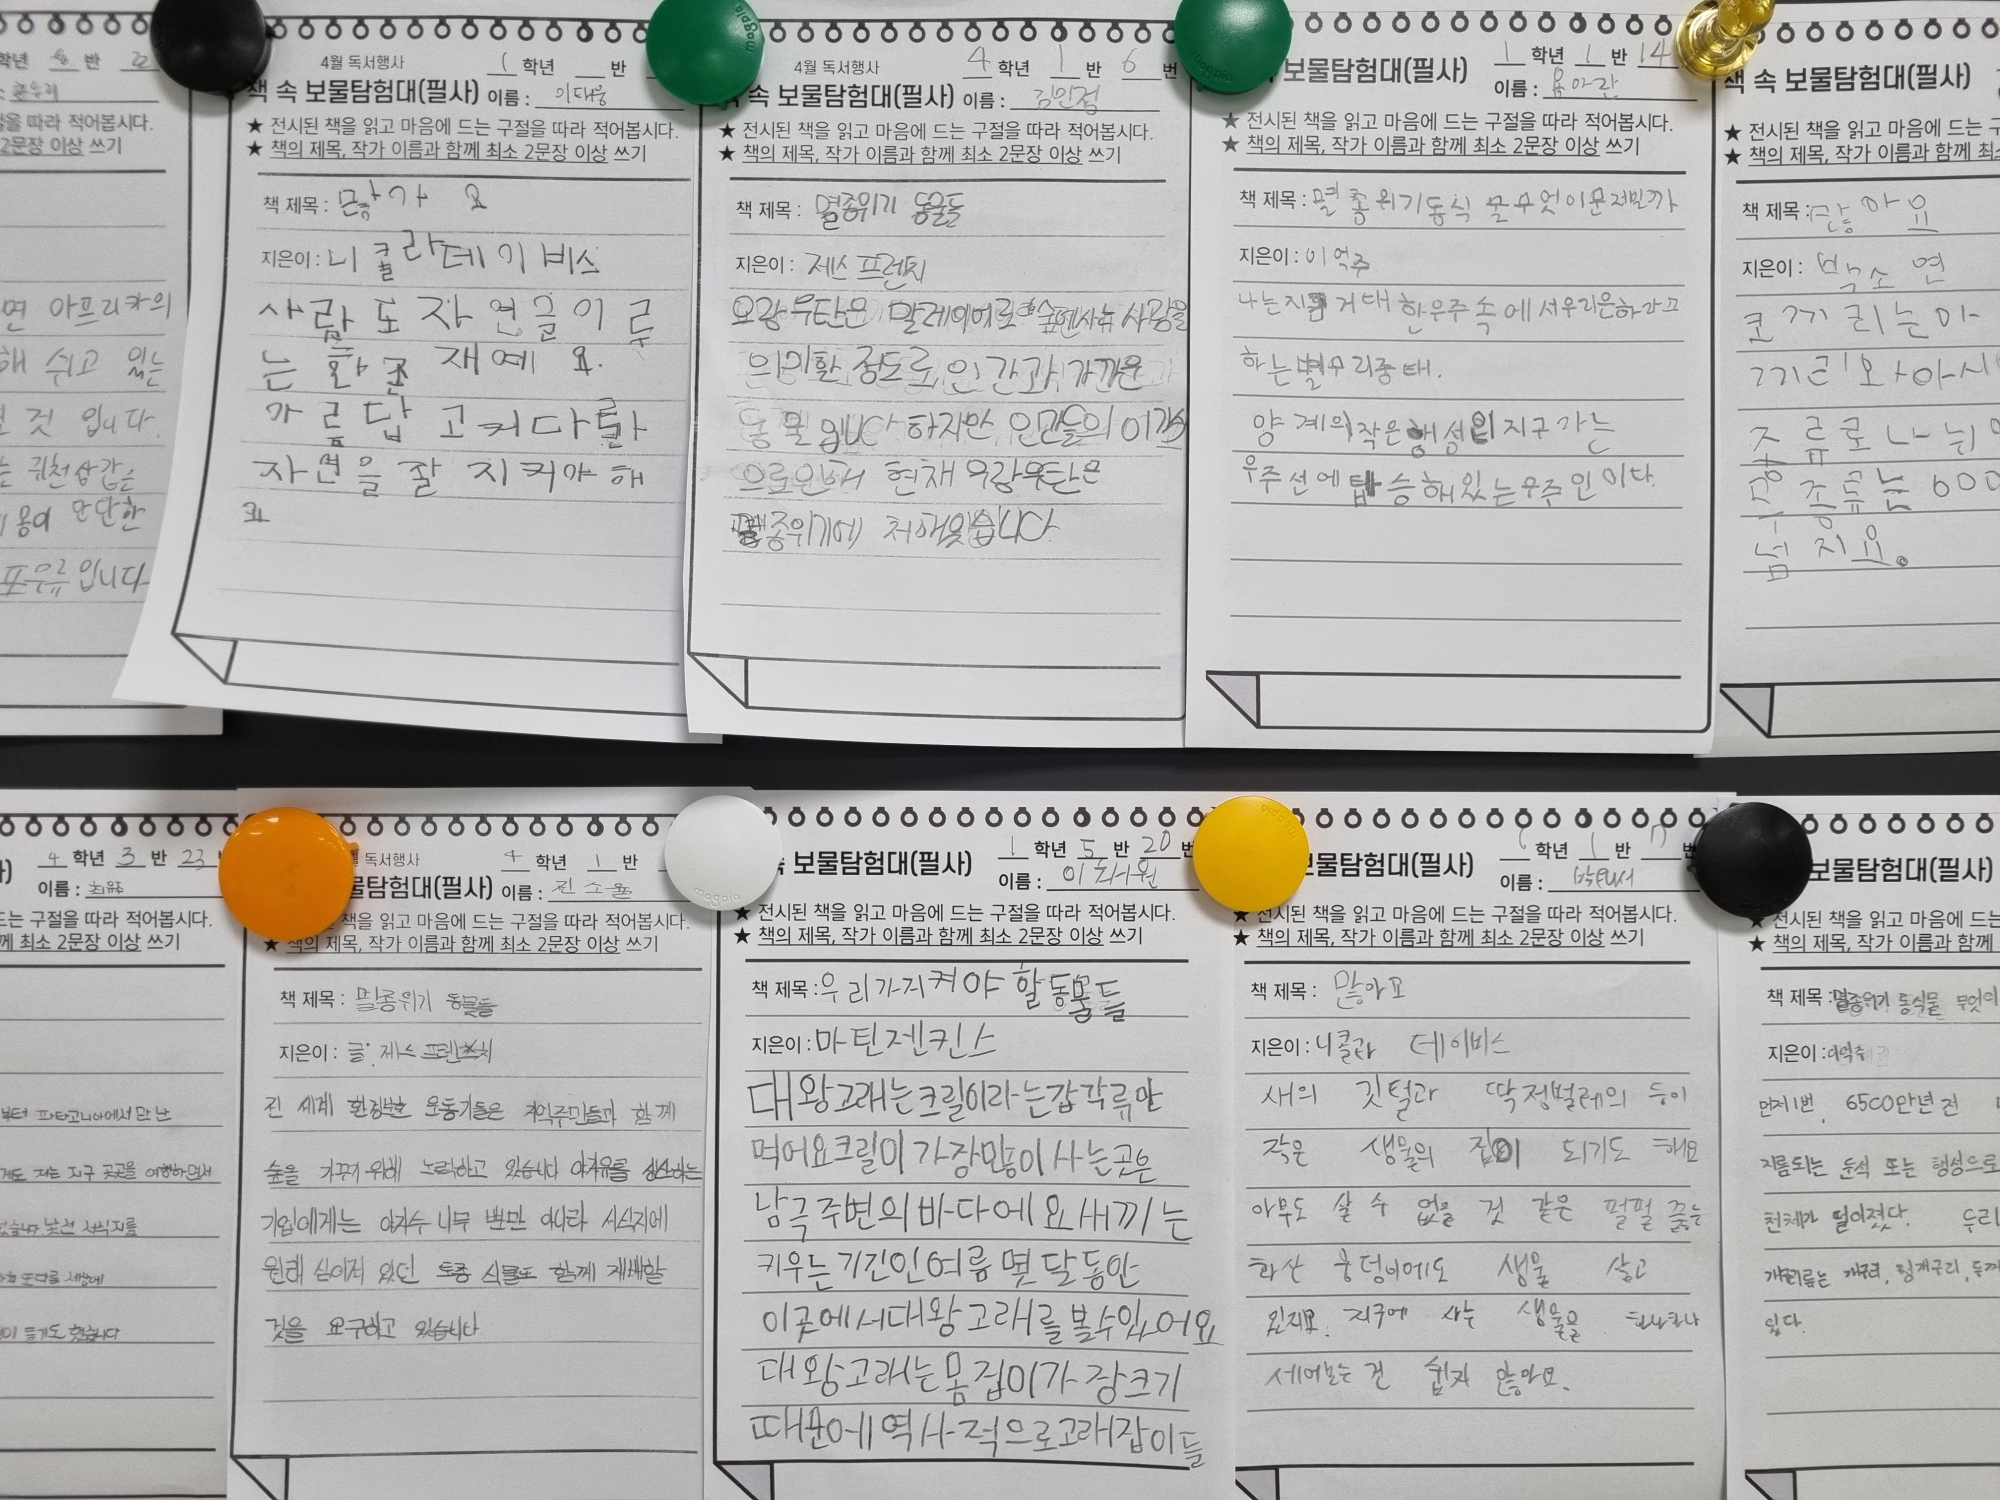 학년 반 22
을 따라 적어봅시다.
2문장 이상 쓰기
면 아프리카의
해 쉬고 있는
것 입니다.
는
만단한
포유류입니다
4월 독서행사
1 학년 반
책 속 보물탐험대(필사)
이름 : 이대웅
★ 전시된 책을 읽고 마음에 드는 구절을 따라 적어봅시다.
★ 책의 제목, 작가 이름과 함께 최소 2문장 이상 쓰기
책 제목 : 많아요
지은이 : 니콜라데이비스
사람도 자연을 이루
는 한 존재예요.
가 름답고 커다란
자연을 잘 지켜야 해
요
4월 독서행사
4 학년 1 반 6 번
속 보물탐험대(필사)
이름 : 김민정
★ 전시된 책을 읽고 마음에 드는 구절을 따라 적어봅시다.
★ 책의 제목, 작가 이름과 함께 최소 2문장 이상 쓰기
책 제목 : 멸종위기 동물들
지은이 : 제스 프렌치
오랑우탄은 말레이어로 숲에사는 사람을
의미할 정도로 인간과 가까운
동물입니다. 하지만 인간들의 이기심
으로인해 현재 오랑우탄은
멸종위기에 처해있습니다.
1 학년 1 반 14
보물탐험대(필사)
이름 : 용아란
★ 전시된 책을 읽고 마음에 드는 구절을 따라 적어봅시다.
★ 책의 제목, 작가 이름과 함께 최소 2문장 이상 쓰기
책 제목 : 멸종위기동식물무엇이문제일까
지은이 : 이억주
나는 거대한우주속에서우리은하라고
하는별무리중 태.
양계의작은행성인지구라는
우주선에탑승해있는우주인이다.
책 속 보물탐험대(필사)
★ 전시된 책을 읽고 마음에 드는
★ 책의 제목, 작가 이름과 함께 최
책 제목 : 많아요
지은이 : 박소연
코끼리는 아
끼리와아시
종류로 나뉘
종류는 600
넘지요.
4 학년 3 반 23
이름 :
드는 구절을 따라 적어봅시다.
께 최소 2문장 이상 쓰기
부터 파타고니아에서 만난
저는 지구 곳곳을 여행하면서
낯선 서식지를
듣기도 했습니다
독서행사
4 학년 1 반
물탐험대(필사)
이름 : 진소율
책을 읽고 마음에 드는 구절을 따라 적어봅시다.
★ 책의 제목, 작가 이름과 함께 최소 2문장 이상 쓰기
책 제목 : 멸종위기 동물들
지은이 : 글: 제스 프렌치
전 세계 환경보호 운동가들은 지역주민들과 함께
숲을 가꾸기 위해 노력하고 있습니다 야자유를 생산하는
기업에게는 야자수 나무 뿐만 아니라 서식지에
원래 심어져 있던 토종 식물도 함께 재배할
것을 요구하고 있습니다
1 학년 5 반 20 번
속 보물탐험대(필사)
이름 : 이채원
★ 전시된 책을 읽고 마음에 드는 구절을 따라 적어봅시다.
★ 책의 제목, 작가 이름과 함께 최소 2문장 이상 쓰기
책 제목 : 우리가지켜야 할 동물들
지은이 : 마틴젠킨스
대왕고래는크릴이라는갑각류만
먹어요크릴이 가장많이 사는곳은
남극주변의 바다에요새끼는
키우는기간인여름 몇 달동안
이곳에서대왕고래를볼수있어요
대왕고래는몸집이가장크기
때문에역사적으로고래잡이들
학년 1 반
보물탐험대(필사)
이름 : 박태서
★ 전시된 책을 읽고 마음에 드는 구절을 따라 적어봅시다.
★ 책의 제목, 작가 이름과 함께 최소 2문장 이상 쓰기
책 제목 : 많아요
지은이 : 니콜라 데이비스
새의 깃털과 딱정벌레의 등이
작은 생물의 집이 되기도 해요
아무도 살 수 없을 것 같은 펄펄 끓는
화산 웅덩이에도 생물 살고
있지요. 지구에 사는 생물을 하나하나
세어보는 건 쉽지 않아요.
보물탐험대(필사)
★ 전시된 책을 읽고 마음에 드는
★ 책의 제목, 작가 이름과 함께
책 제목 : 멸종위기 동식물 무엇이
지은이 : 이억주
먼저 1번, 6500만년 전
지름되는 운석 또는 행성으로
천체가 떨어졌다. 두리
개구리, 청개구리, 두꺼
있다.